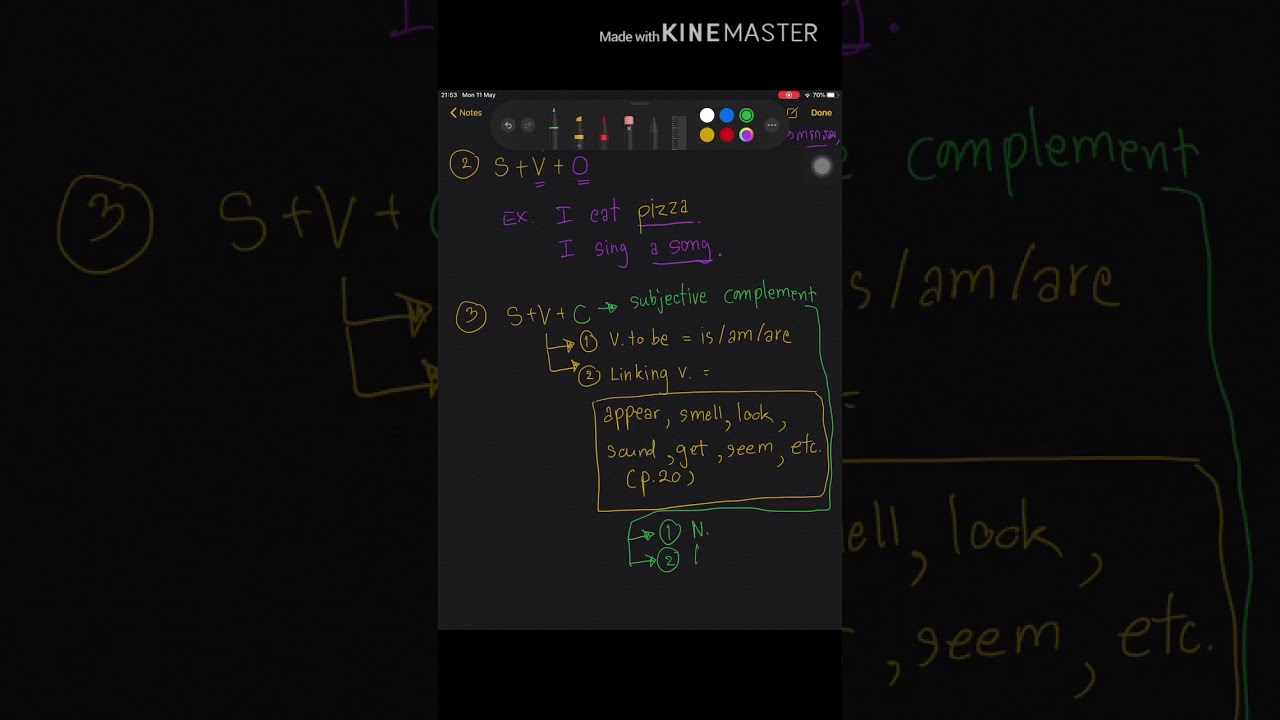 Made with KINEMASTER
21:53 Mon 11 May 70%
Notes Done
② S + V + O
EX. I eat pizza
I sing a song.
③ S+V+ C → subjective complement
① V. to be = is/am/are
② Linking v. =
appear, smell, look,
sound, get, seem, etc.
(p.20)
① N.
②
I
③ S+V+
complement
s/am/are
=
ell, look,
, seem, etc.